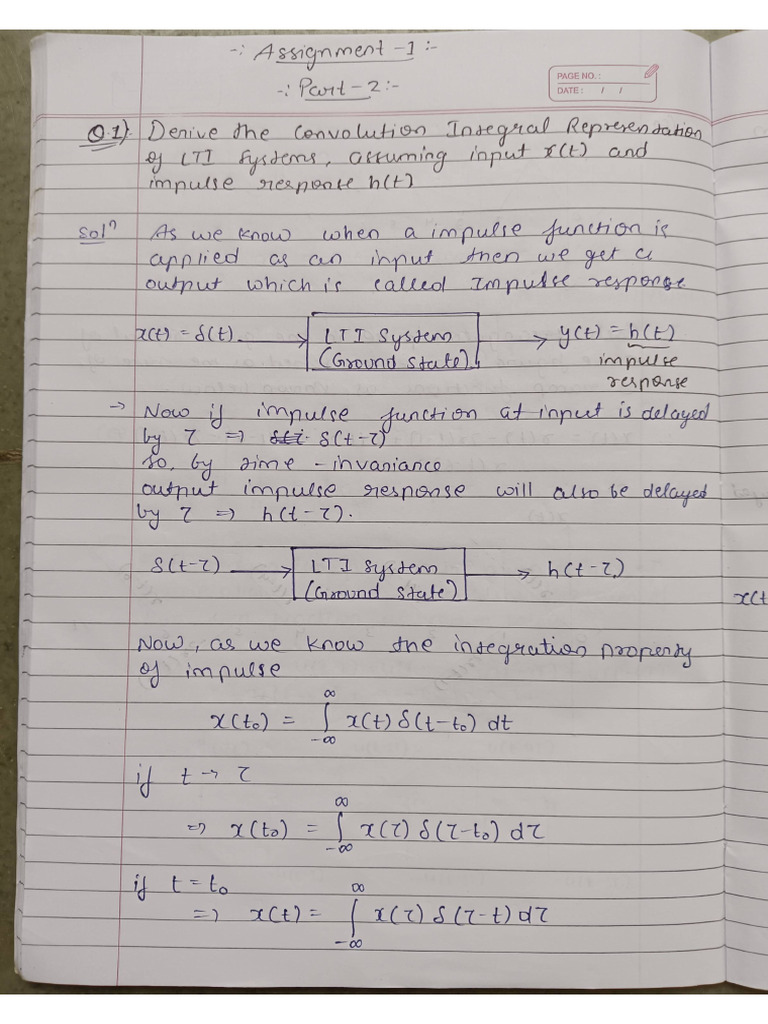 -: Assignment -1 :-
-: Part - 2 :-
PAGE NO. :
DATE : / /
Q.1) Derive the Convolution Integral Representation
of LTI Systems, assuming input x(t) and
impulse response h(t)
Solⁿ As we know when a impulse function is
applied as an input then we get a
output which is called Impulse response
x(t) = δ(t). → LTI System (Ground State) → y(t) = h(t)
impulse
response
→ Now if impulse function at input is delayed
by τ => δ(t-τ)
so, by time - invariance
output impulse response will also be delayed
by τ => h(t-τ).
δ(t-τ) → LTI System (Ground State) → h(t-τ)
Now, as we know the integration property
of impulse
x(t₀) = ∫_{-∞}^{∞} x(t) δ(t-t₀) dt
if t → τ
=> x(t₀) = ∫_{-∞}^{∞} x(τ) δ(τ-t₀) dτ
if t = t₀
=> x(t) = ∫_{-∞}^{∞} x(τ) δ(τ-t) dτ
x(t